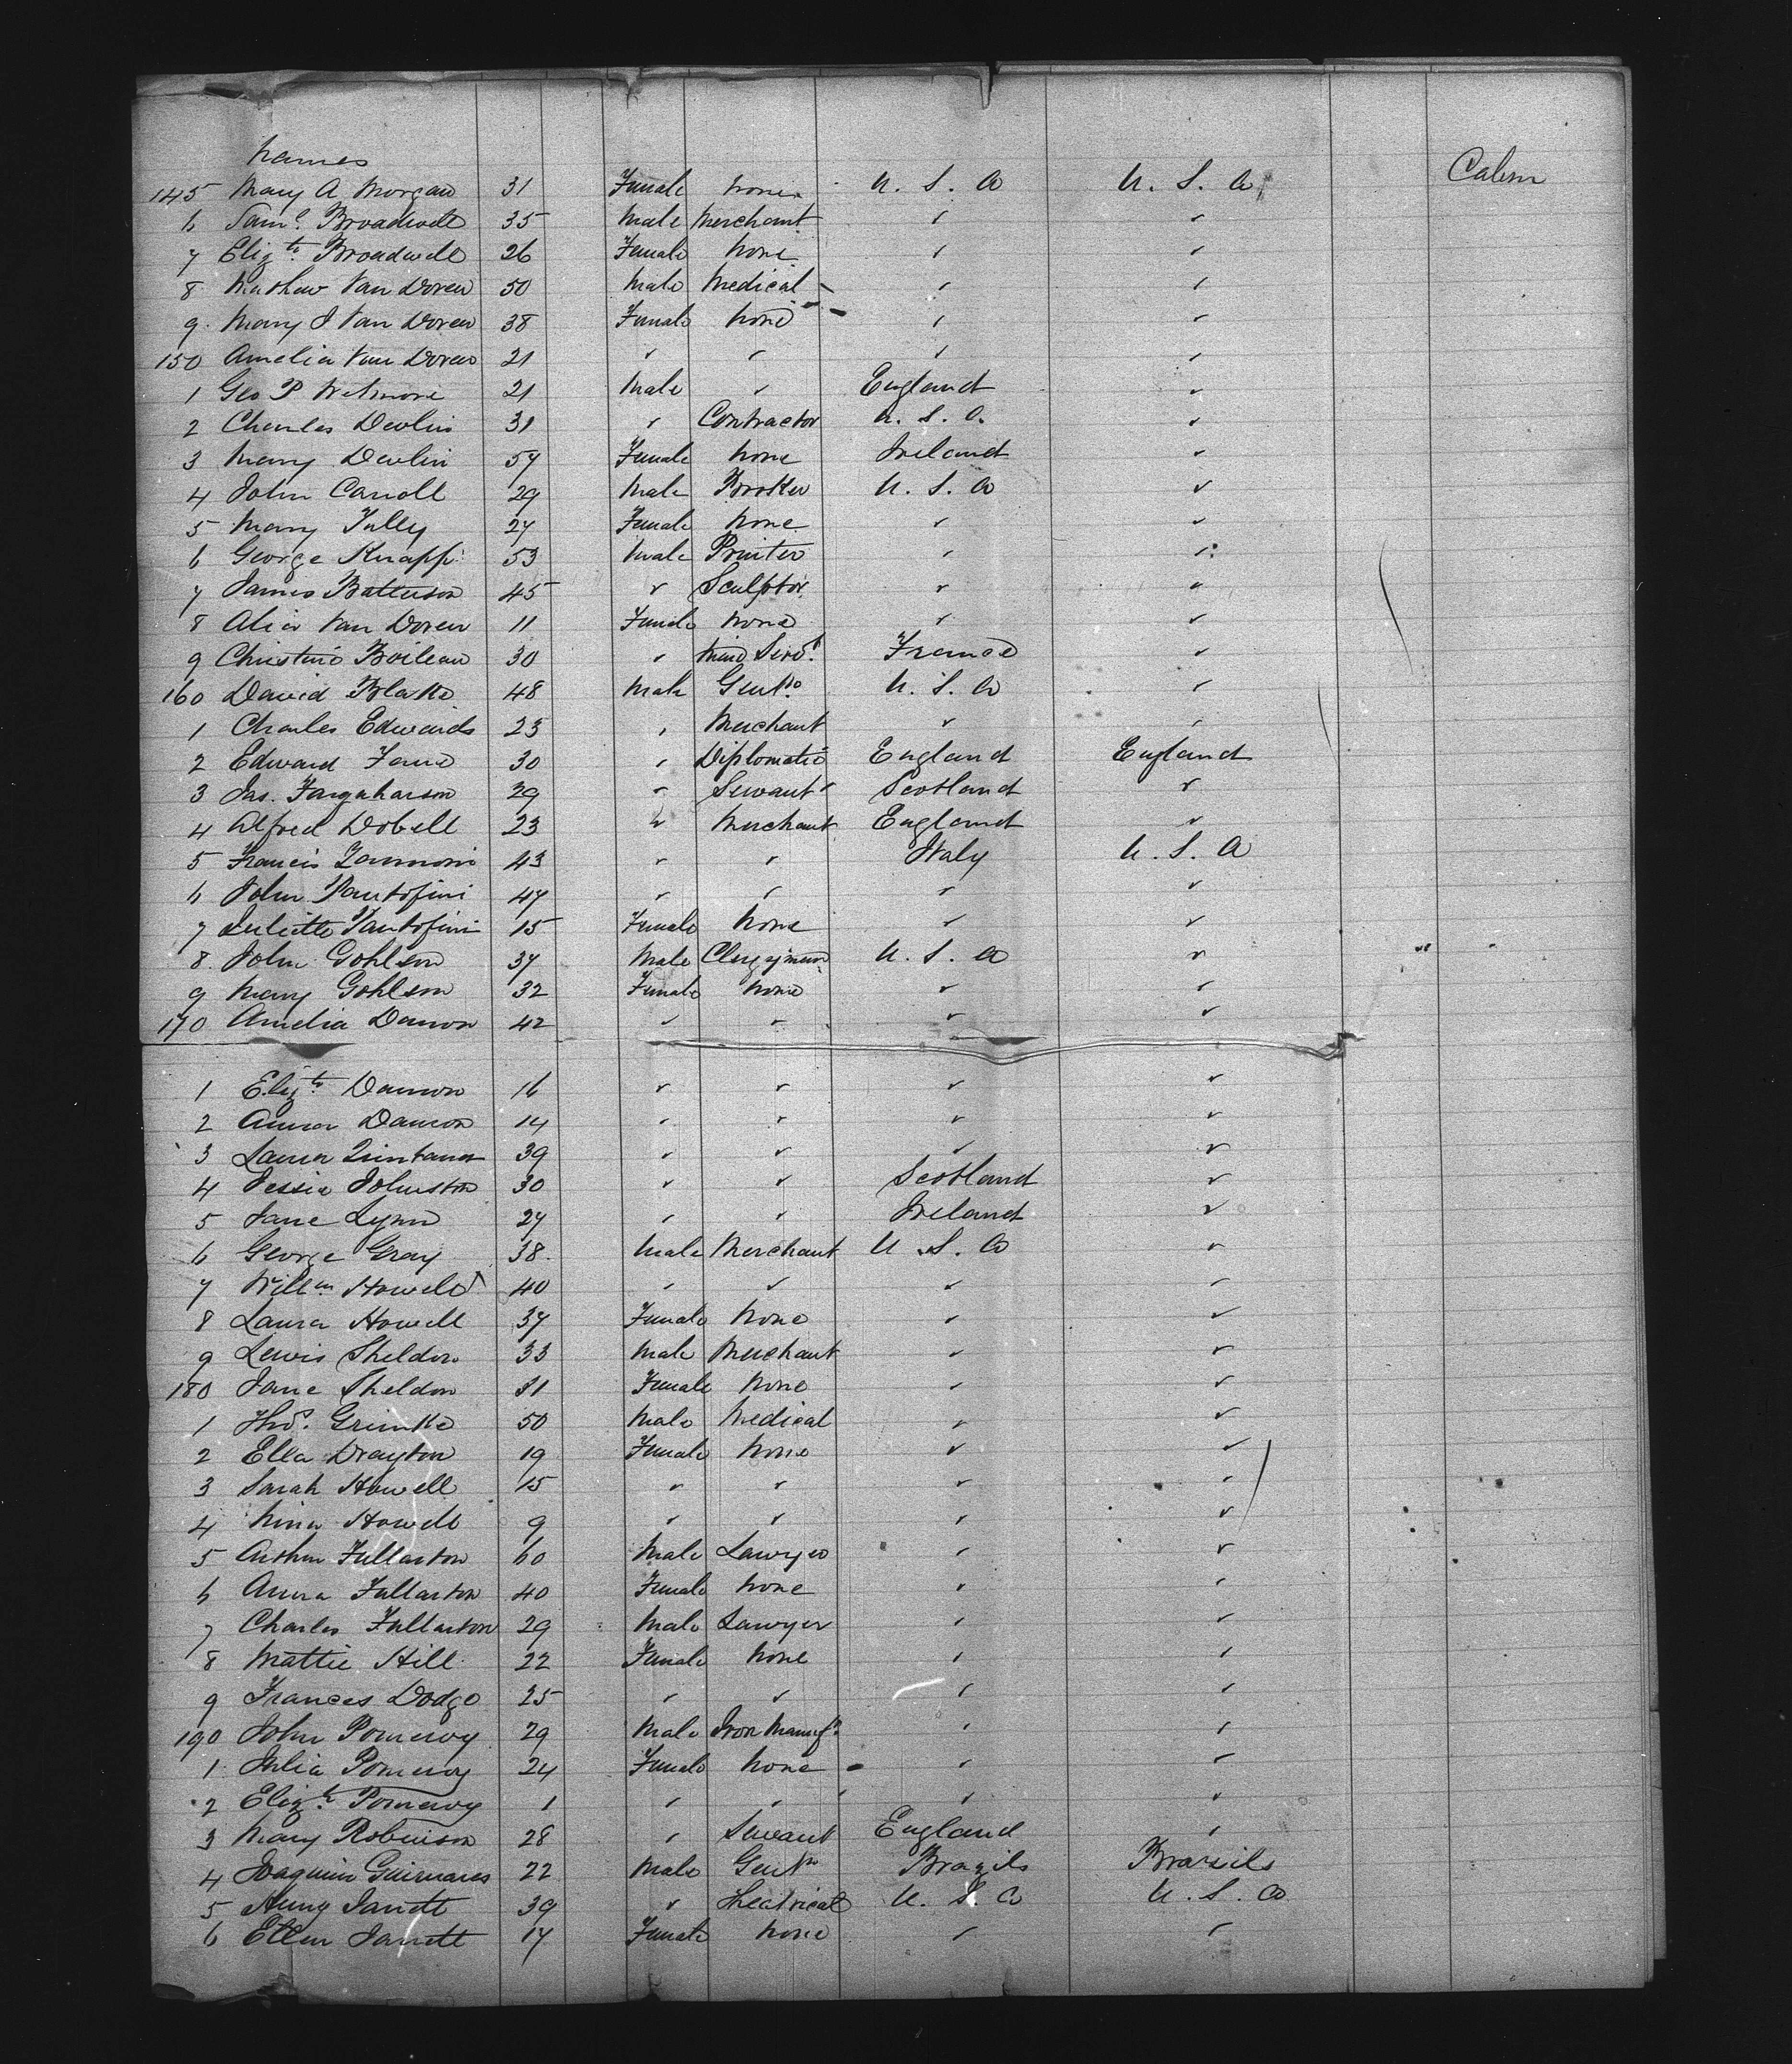 Names
145 Mary A Morgan 31 Female None U. S. A U. S. A Cabin
6 Saml. Broadwell 35 Male Merchant ✓ ✓
7 Elizth. Broadwell 26 Female None ✓ ✓
8 Mathew Van Doren 50 Male Medical ✓ ✓
9 Mary J Van Doren 38 Female None ✓ ✓
150 Amelia Van Doren 21 ✓ ✓ ✓ ✓
1 Geo P Wetmore 21 Male ✓ England ✓
2 Charles Devlin 31 ✓ Contractor U. S. A. ✓
3 Mary Devlin 57 Female None Ireland ✓
4 John Carroll 29 Male Broker U. S. A ✓
5 Mary Tully 27 Female None ✓ ✓
6 George Knapp 53 Male Printer ✓ ✓
7 James Batterson 45 ✓ Sculptor ✓ ✓
8 Alice Van Doren 11 Female None ✓ ✓
9 Christine Boileau 30 ✓ Maid Servt. France ✓
160 David Blake 48 Male Gentn. U. S. A ✓
1 Charles Edwards 23 ✓ Merchant ✓ ✓
2 Edward Fane 30 ✓ Diplomatic England England
3 Jas. Farquharson 29 ✓ Servant Scotland ✓
4 Alfred Dobell 23 ✓ Merchant England ✓
5 Francis 43 ✓ ✓ Italy U. S. A
6 John Pantofini 47 ✓ ✓ ✓ ✓
7 Juliette Pantofini 15 Female None ✓ ✓
8 John Gohlson 37 Male Clergyman U. S. A ✓
9 Mary Gohlson 32 Female None ✓ ✓
170 Amelia Damon 42 ✓ ✓ ✓ ✓
1 Elizth Damon 16 ✓ ✓ ✓ ✓
2 Anna Damon 14 ✓ ✓ ✓ ✓
3 Laura Quintana 39 ✓ ✓ ✓ ✓
4 Jessie Johnston 30 ✓ ✓ Scotland ✓
5 Jane Lynn 27 ✓ ✓ Ireland ✓
6 George Gray 38 Male Merchant U. S. A ✓
7 Willm Howell 40 ✓ ✓ ✓ ✓
8 Laura Howell 37 Female None ✓ ✓
9 Lewis Sheldon 33 Male Merchant ✓ ✓
180 Jane Sheldon 31 Female None ✓ ✓
1 Thos. Grimke 50 Male Medical ✓ ✓
2 Ella Drayton 19 Female None ✓ ✓
3 Sarah Howell 15 ✓ ✓ ✓ ✓
4 Nina Howell 9 ✓ ✓ ✓ ✓
5 Arthur Fullarton 60 Male Lawyer ✓ ✓
6 Anna Fullarton 40 Female None ✓ ✓
7 Charles Fullarton 29 Male Lawyer ✓ ✓
8 Mattie Hill 22 Female None ✓ ✓
9 Frances Dodge 25 ✓ ✓ ✓ ✓
190 John Pomeroy 29 Male Iron Manufr. ✓ ✓
1 Julia Pomeroy 24 Female None ✓ ✓
2 Elizth. Pomeroy 1 ✓ ✓ ✓ ✓
3 Mary Robinson 28 ✓ Servant England ✓
4 Joaquim Guimares 22 Male Gentn Brazils Brazils
5 Henry Jarrett 39 ✓ Theatrical U. S. A U. S. A
6 Ellen Jarrett 17 Female None ✓ ✓